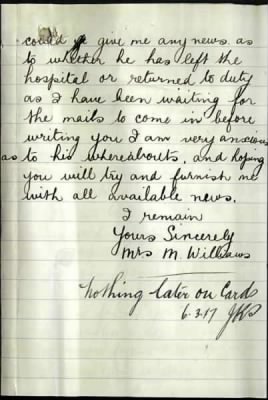 could give me any news as
to whether he has left the
hospital or returned to duty
as I have been waiting for
the mails to come in before
writing you I am very anxious
as to his whereabouts, and hoping
you will try and furnish me
with all available news.
I remain
Yours Sincerely
Mrs M. Williams
Nothing later on Card
6.3.17